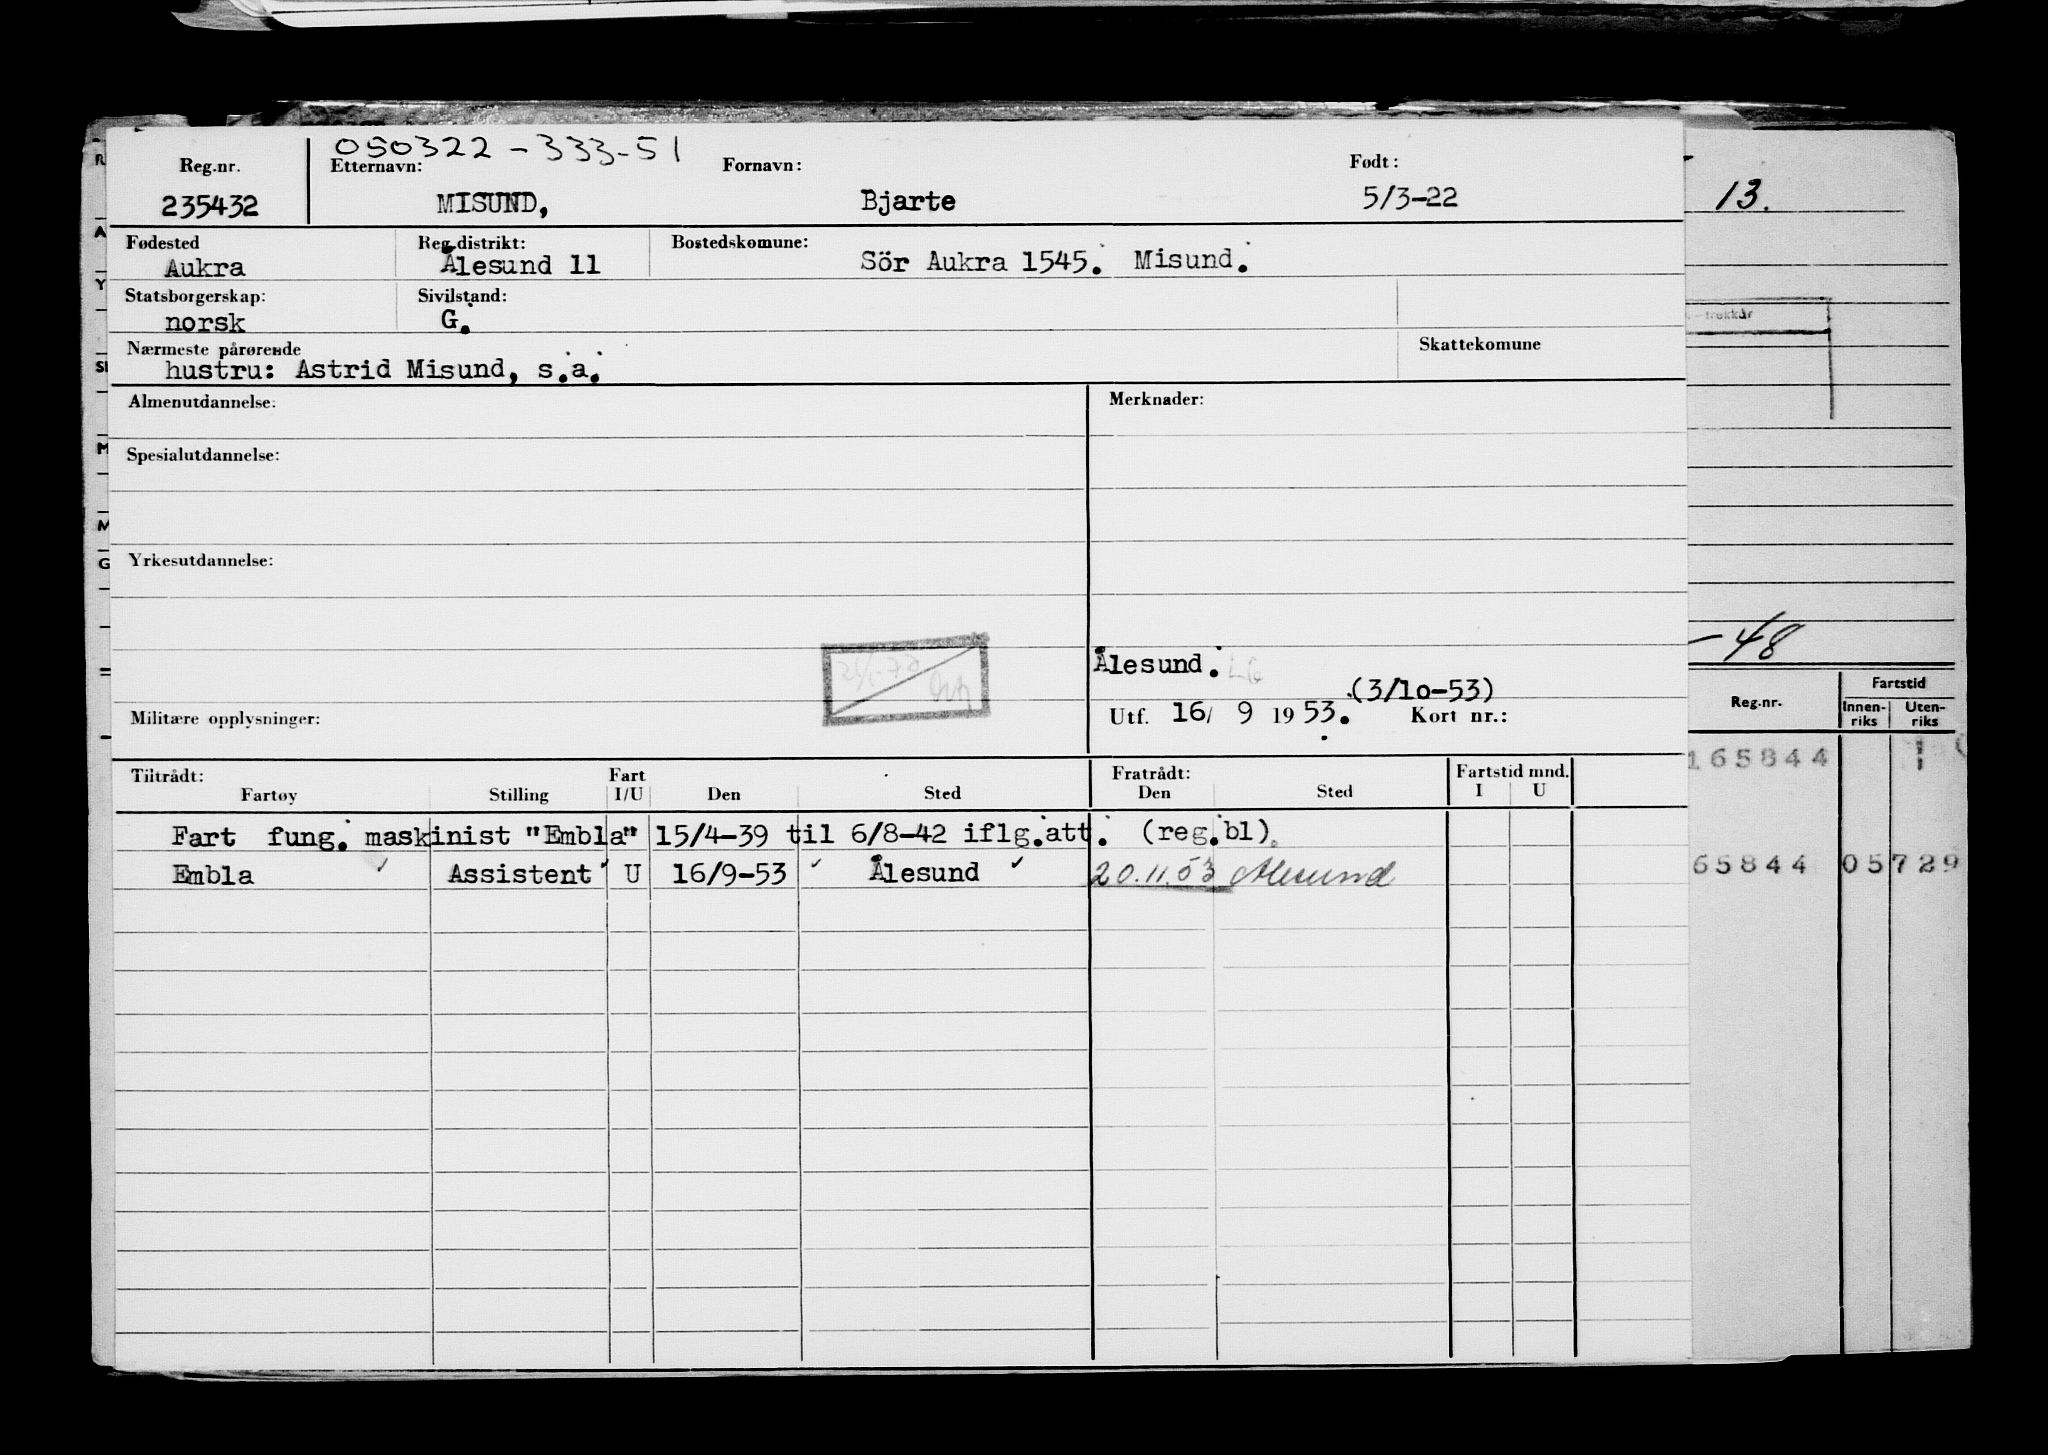 050322-333-51
Reg.nr. Etternavn: Fornavn: Født:
235432 MISUND, Bjarte 5/3-22
13.
Fødested Reg.distrikt: Bostedskomune:
Aukra Ålesund 11 Sör Aukra 1545. Misund.
Statsborgerskap: Sivilstand:
norsk G.
Nærmeste pårørende Skattekomune
hustru: Astrid Misund, s.a.
Almenutdannelse: Merknader:
Spesialutdannelse:
Yrkesutdannelse:
-48
Ålesund.
(3/10-53)
Militære opplysninger: Utf. 16/ 9 1953. Kort nr.:
Reg.nr. Fartstid
Innen-riks Uten-riks
165844 1
Tiltrådt: Fart Fratrådt: Fartstid mnd.
Fartøy Stilling I/U Den Sted Den Sted I U
Fart fung. maskinist "Embla" 15/4-39 til 6/8-42 iflg.att. (reg.bl).
Embla Assistent U 16/9-53 Ålesund 20.11.53 Ålesund
65844 05729